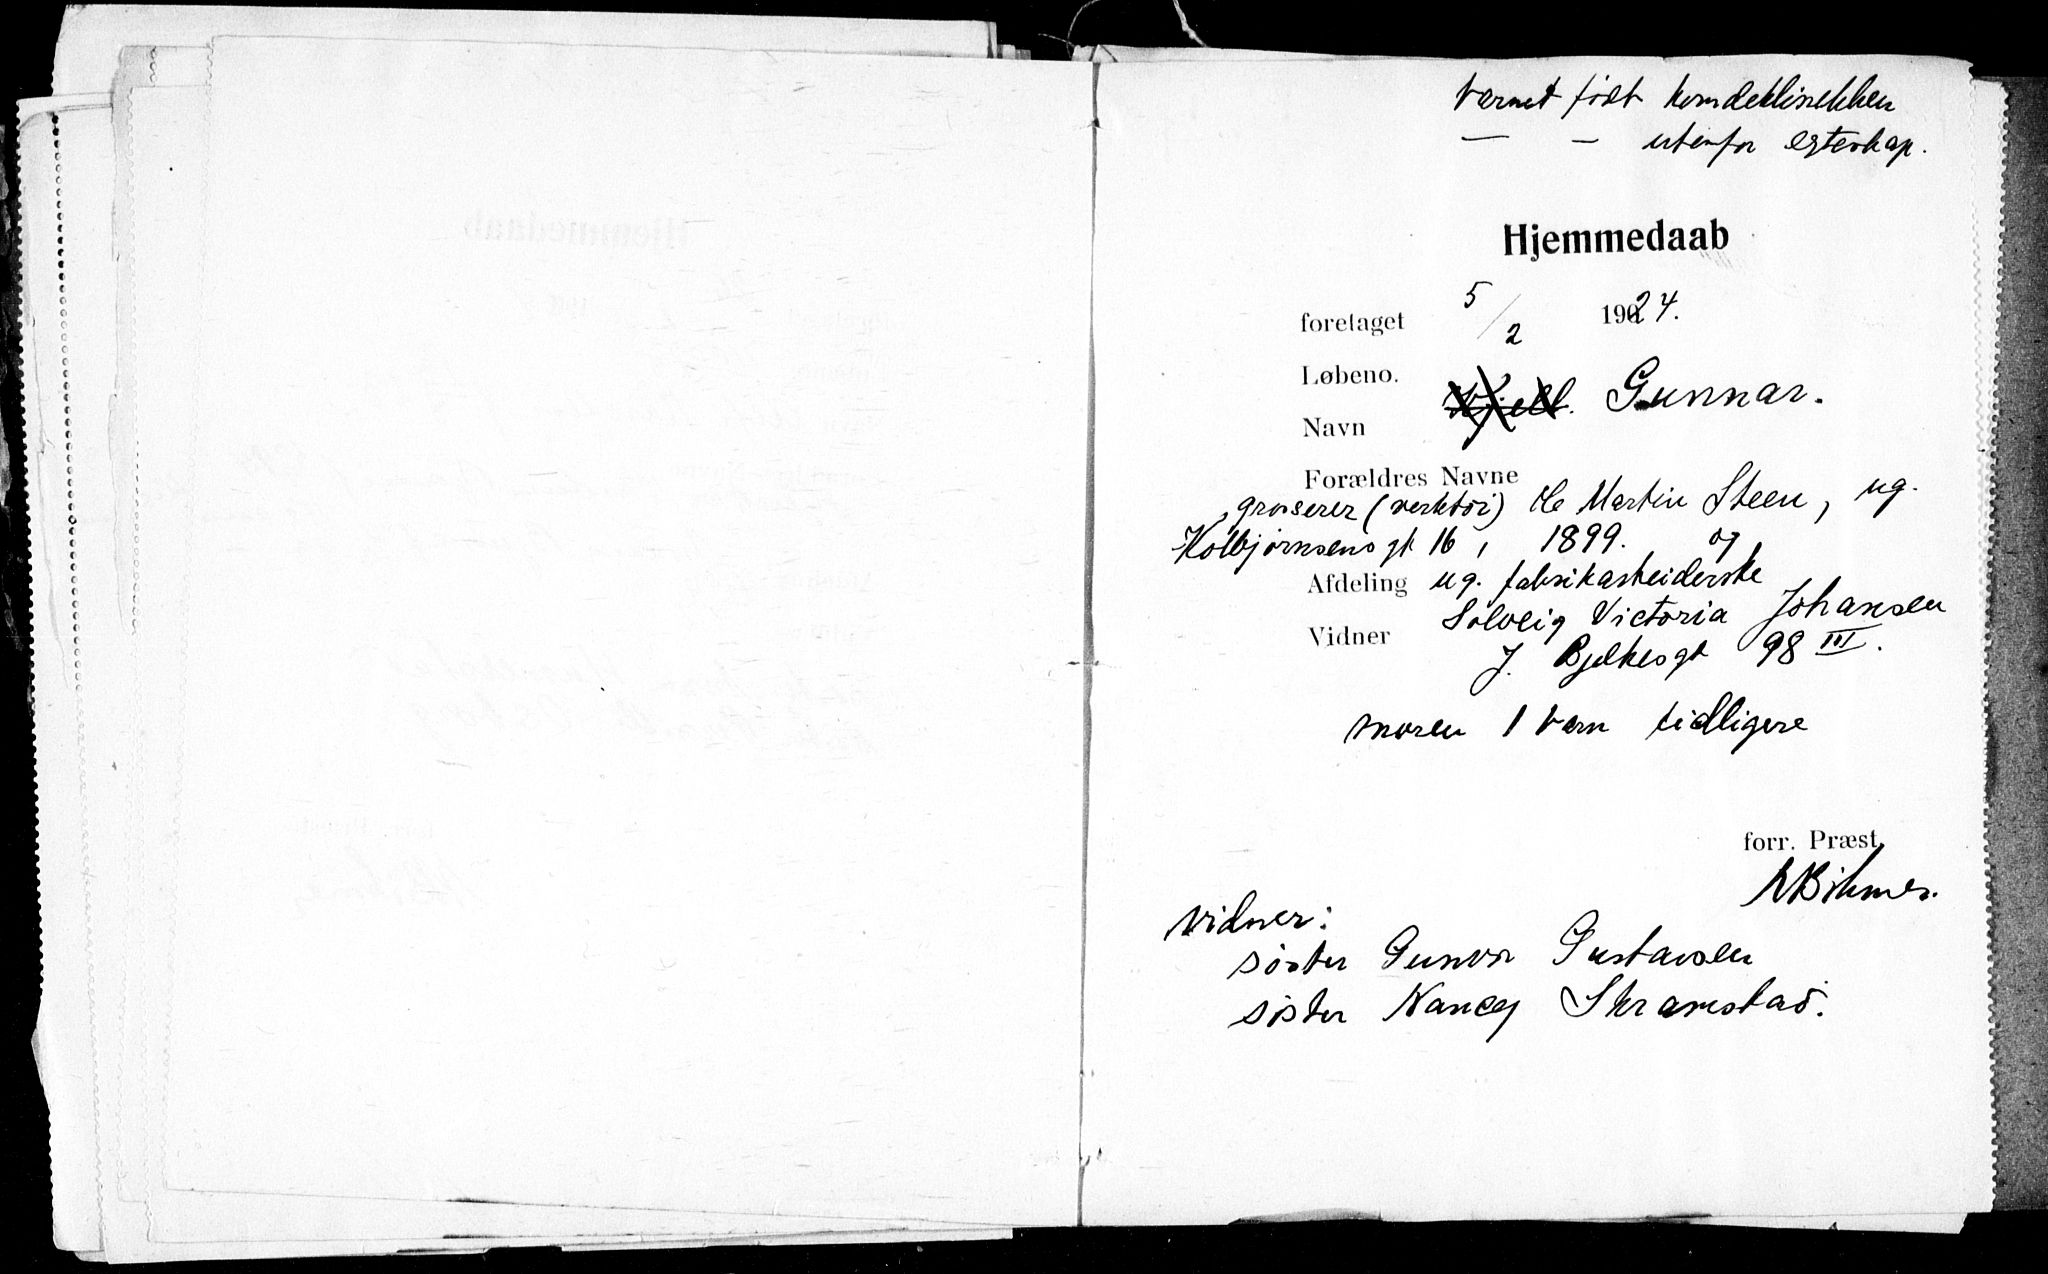 barnet født kvindeklinikken
— — utenfor egteskap.
Hjemmedaab
foretaget 5/2 1924.
Løbeno.
Navn Kjell. Gunnar.
Forældres Navne
grosserer (verktøi) Martin Steen, ug.
Kolbjørnsensgt 16, 1899. og
Afdeling ug. fabrikarbeiderske
Solveig Victoria Johansen
Vidner
J. Bjelkesgt 98 III.
moren 1 barn tidligere
forr. Præst
vidner:
søster Gunvor Gustavsen
søster Nancy Skramstad.